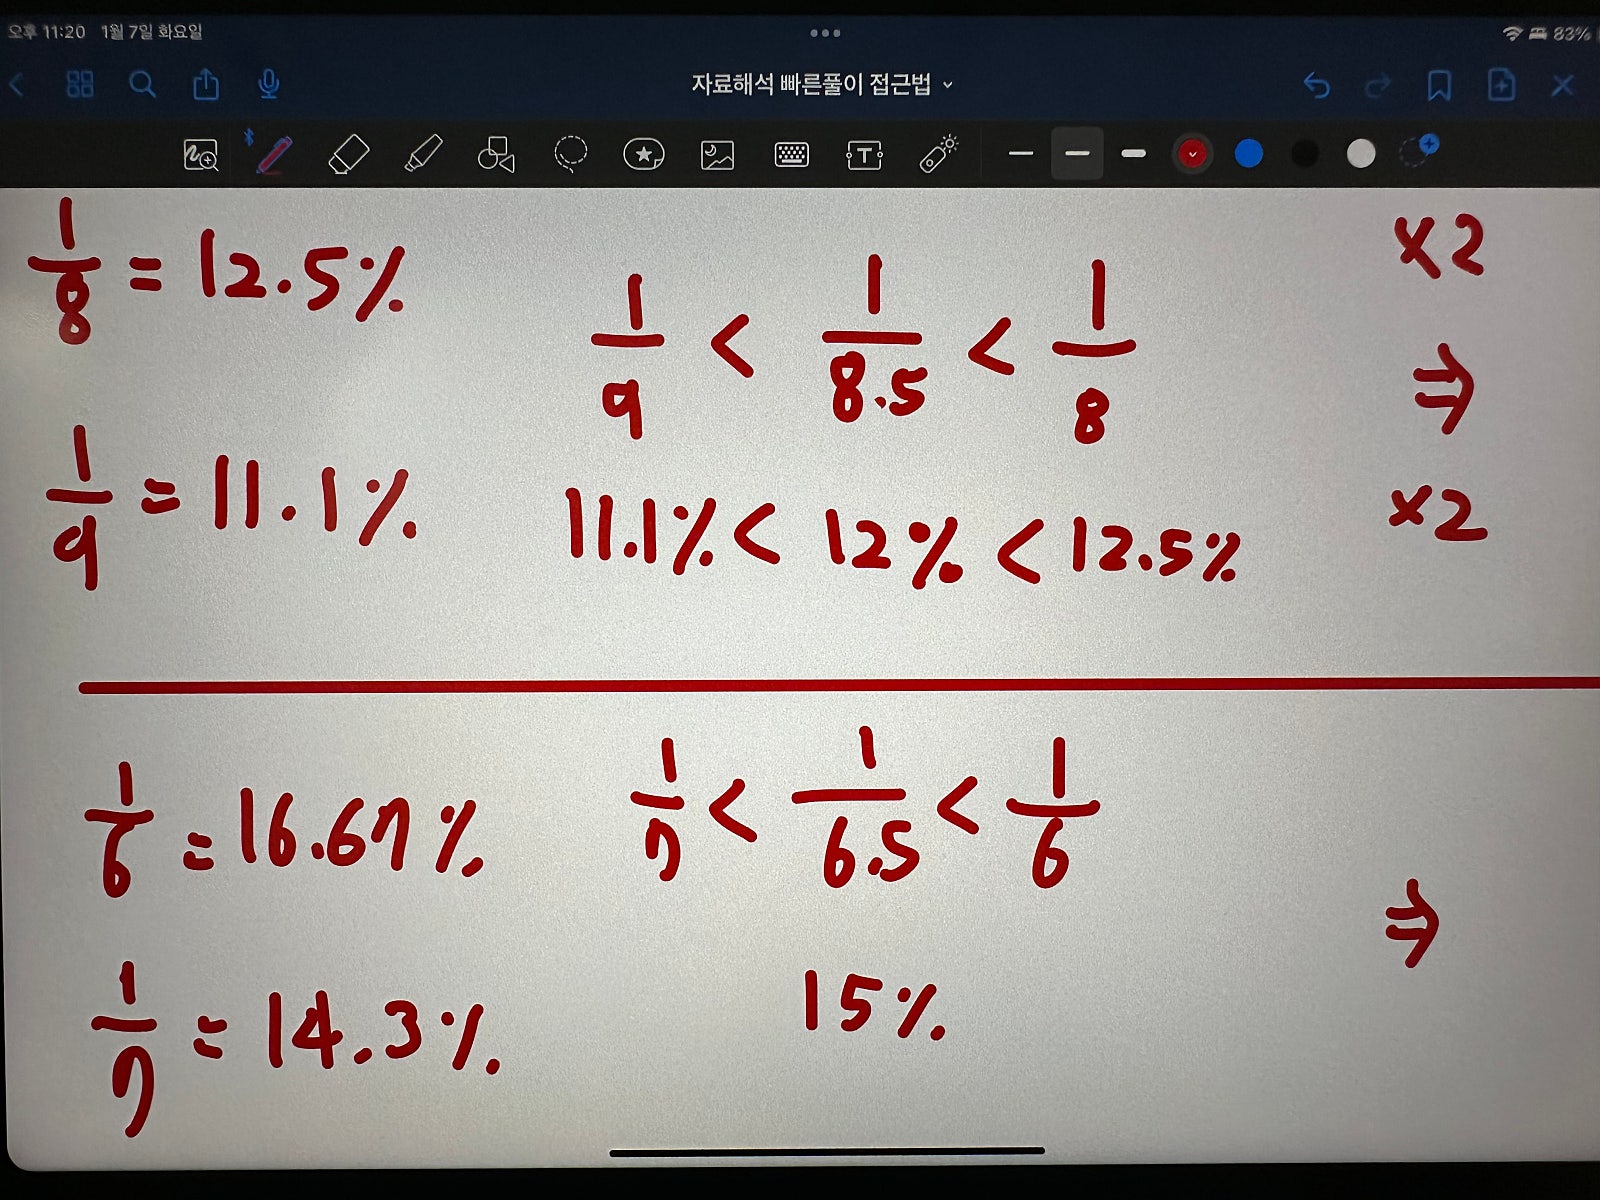 오후 11:20 1월 7일 화요일 83%
자료해석 빠른풀이 접근법
T
1/8 = 12.5%
1/9 < 1/8.5 < 1/8
×2
⇒
1/9 = 11.1%
11.1% < 12% < 12.5%
×2
1/6 = 16.67%
1/7 < 1/6.5 < 1/6
⇒
1/7 = 14.3%
15%